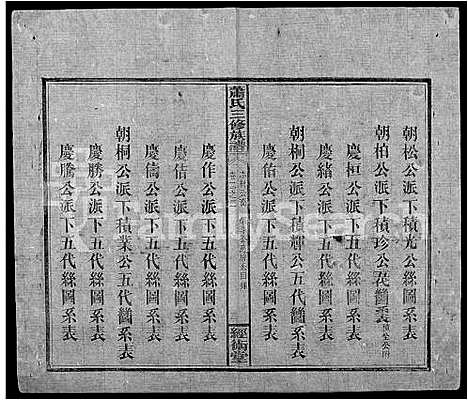 朝松公派下積光公絲圖系表
朝柏公派下積珍公花圖表
慶桓公派下五代絲圖系表
慶緒公派下五代絲圖系表
朝桐公派下積輝公五代圖系表
慶偕公派下五代絲圖系表
蕭氏三修族譜
經術堂
慶作公派下五代絲圖系表
慶佶公派下五代絲圖系表
慶儔公派下五代絲圖系表
朝桐公派下積業公五代圖系表
慶勝公派下五代絲圖系表
慶騰公派下五代絲圖系表
FamilySearch